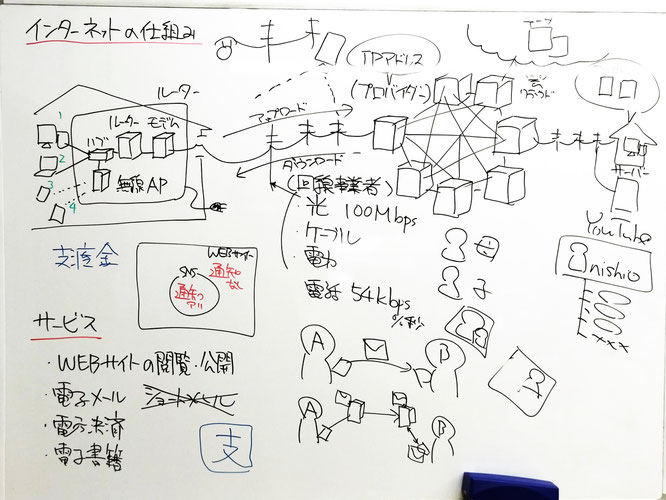 インターネットの仕組み
IPアドレス
(プロバイダー)
データ
クラウド
ルーター
ルーター モデム
ハブ
無線AP
1
2
3
4
アップロード
ダウンロード
(回線事業者)
・光 100Mbps
・ケーブル
・電力
電話 54kbps
サーバー
YouTube
nishio
xxx
支度金
WEBサイト
通知なし
SNS
通知アリ
サービス
・WEBサイトの閲覧・公開
・電子メール ショートメール
・電子決済
・電子書籍
支
A
B
A
B